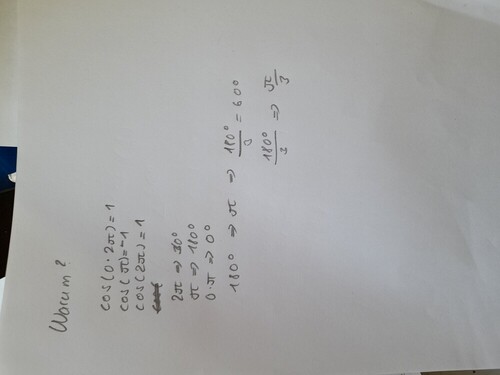 Warum?
cos(0·2π)=1
cos(π)=-1
cos(2π)=1
2π ⇒ 30°
π ⇒ 180°
0·π ⇒ 0°
180° ⇒ π ⇒ 180°/3 = 60°
180°/3 ⇒ π/3